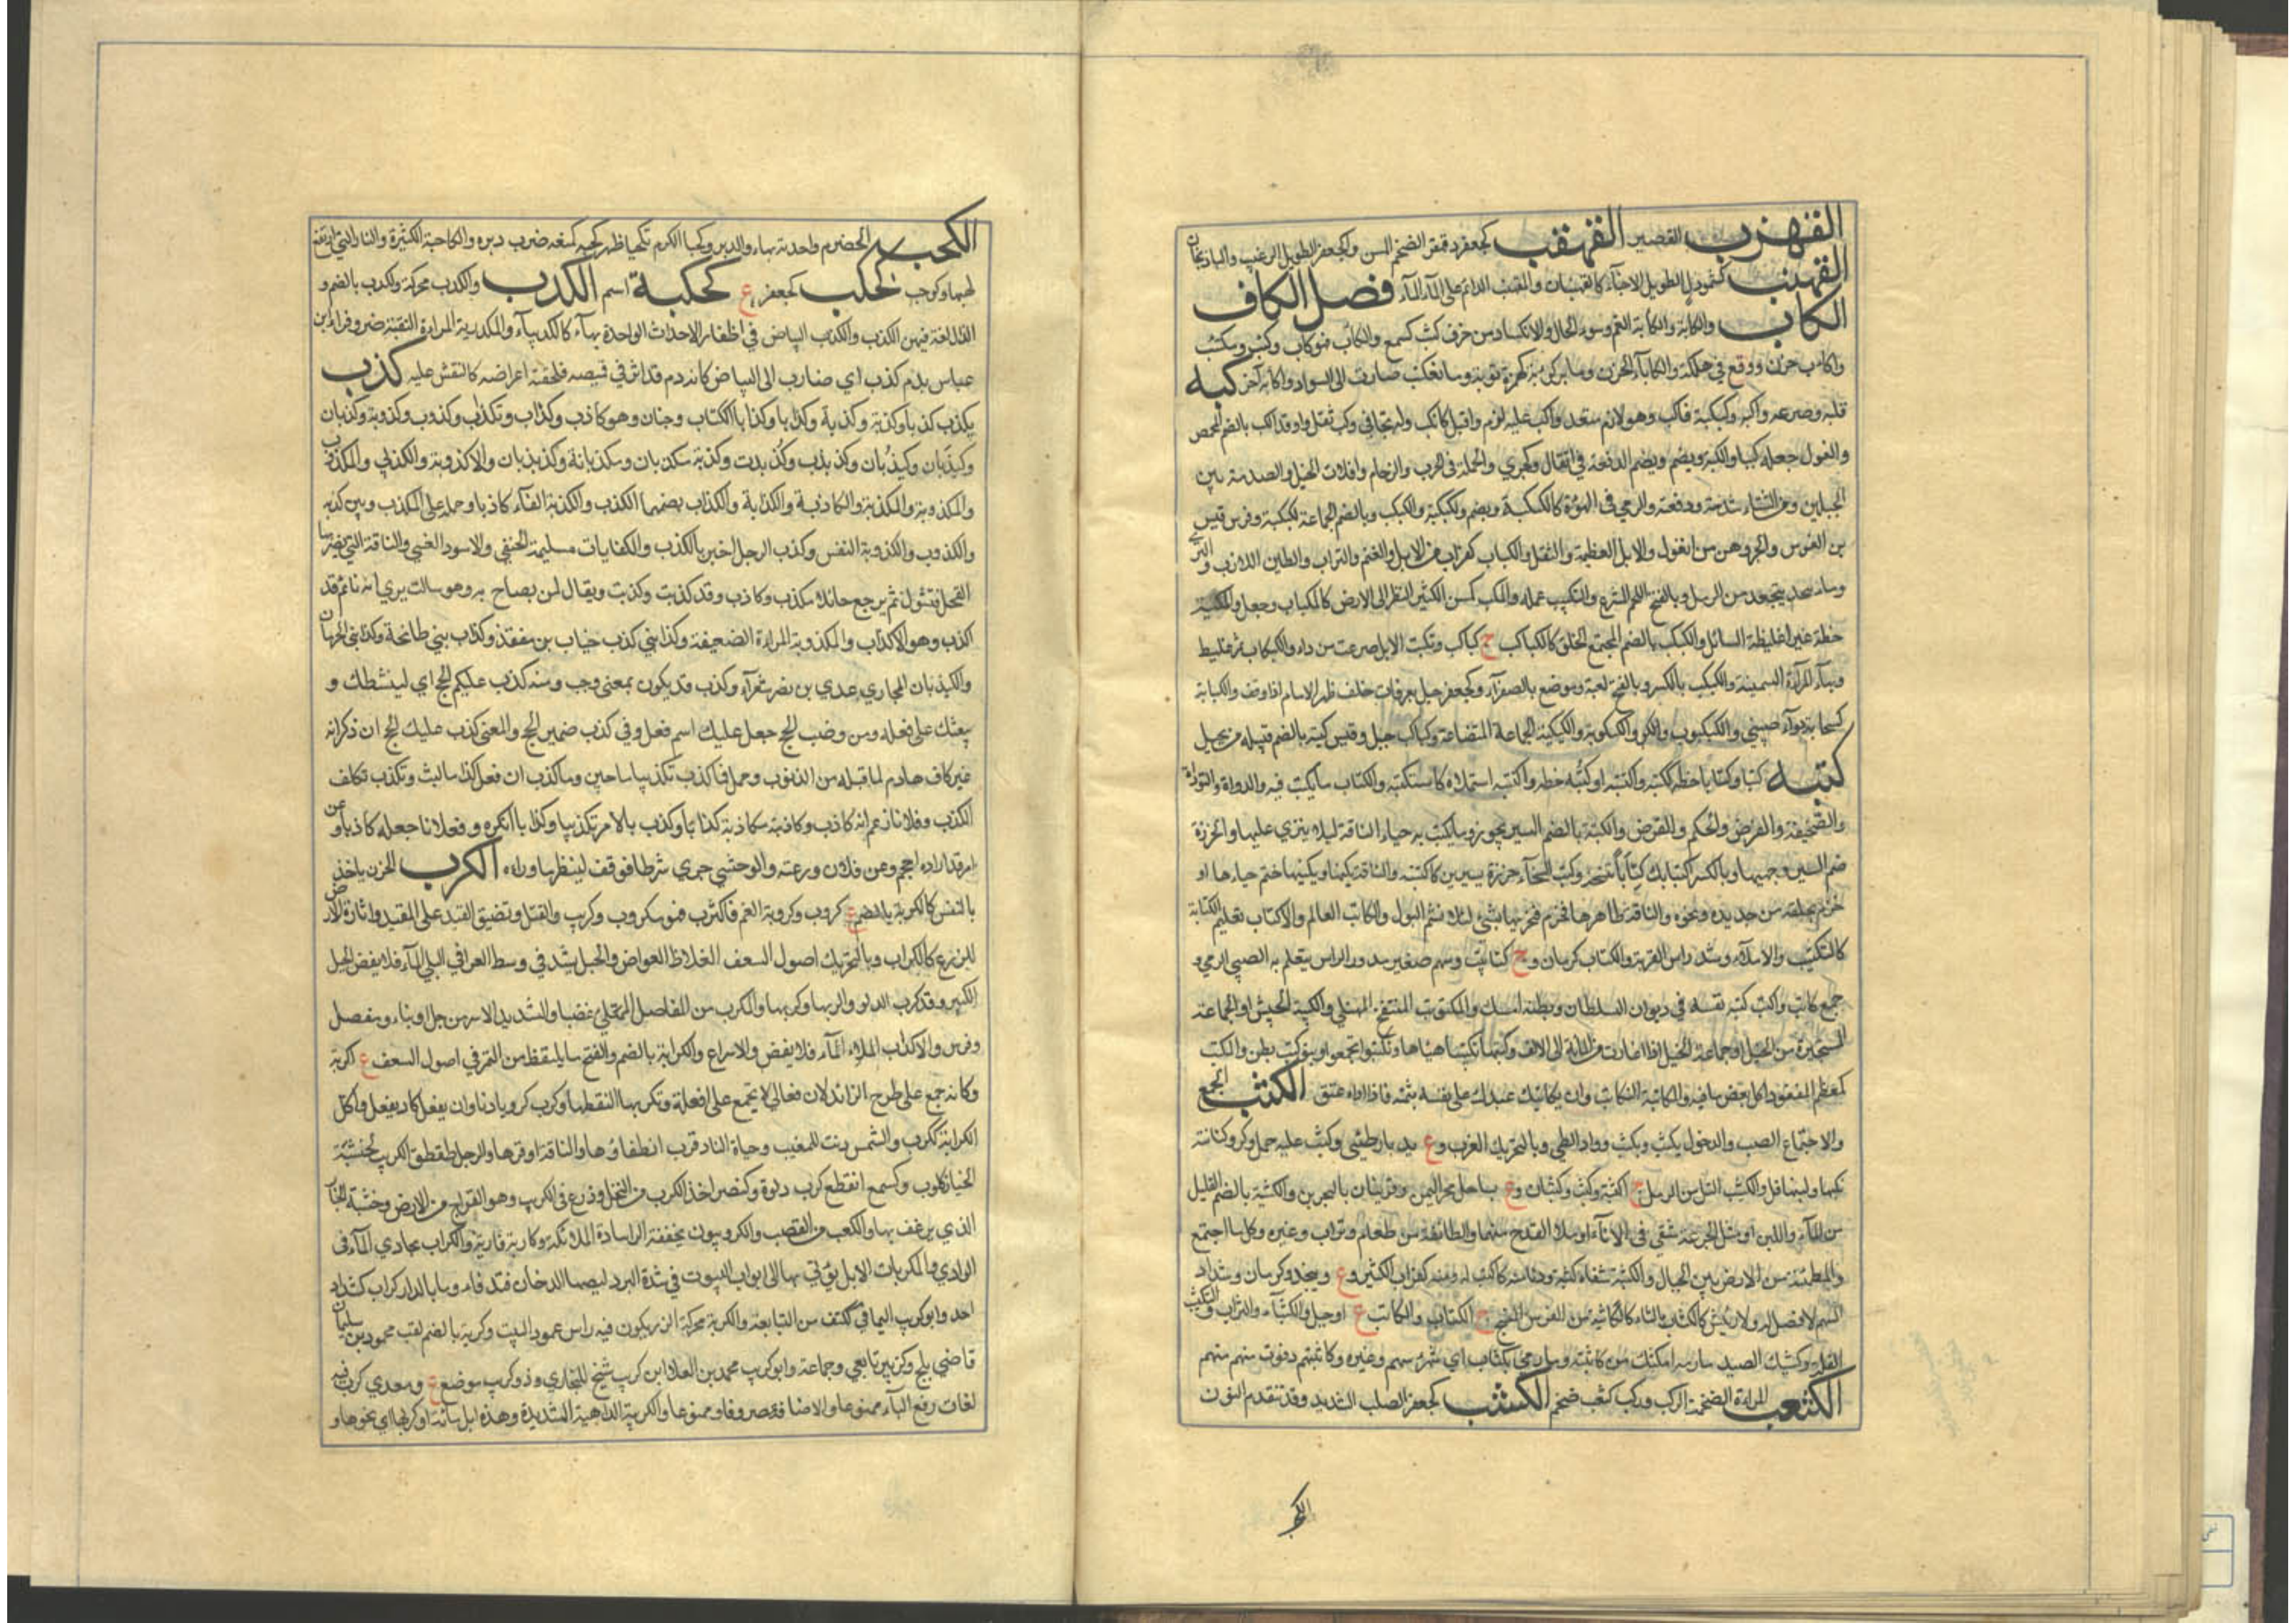 القهزب القصير القهقب كجعفر وقهقر الضخم المسن وكجعفر الطويل الرغيب والباذنجان
القهنب كشمردل الطويل الاجناء كالقهنبان والمقهنب الدائم على الماء الماء فصل الكاف
الكأب والكأبة والكآبة الغم وسوء الحال والانكسار من حزن كئب كسمع واكتأب فهو كأب وكئيب ومكتئب
واكأب حزن ووقع في هلكة والكأباء الحزن وما به كؤبة كهمزة توبة وما مكتئب ضارب الى السواد واكأبه احزنه كبه
قلبه وصرعه واكبه وكبكبه فاكب وهو لازم متعد واكب عليه لزم واقبل كانكب وله تجانى وكب ثقل واوقد الكب بالضم للحمص
والغزل جعله كببا والكبة ويضم ويضم الدفعة في القتال والجري والحملة في الحرب والزحام وافلات الخيل والصدمة بين
الجبلين ومن الشتاء شدته ودفعته والرمي في الهوة كالكبكبة ويضم والكبكبة والكبكب وبالضم الجماعة كالكبكبة وفرس قيس
بن الغوث والجروهق من الغزل والابل العظيمة والثقل والكباب كغراب من الابل والغنم والتراب والطين اللازب والثرى
وماء بنجد يتجعد من الرمل وبالفتح اللحم المشرح والتكبيب عمله والمكب كمسن الكثير النظر الى الارض كالمكباب وجعل والمكببة
حنطة غبراء غليظة السنابل والكبكب بالضم المجتمع الخلق كالكباكب ج كباكب وتكبت الابل صرعت من داء والكبكاب تمر غليظ
وبهاء المرأة السمينة والكبكب بالكسر وبالفتح لعبة وموضع بالصفراء وكجعفر جبل بعرفات خلف ظهر الامام اذا وقف والكبابة
كسحابة دواء صيني والكبكبوب والكبكوب والكبكوبة والكبكبة الجماعة المتضامة وكباكب جبل وقيس كبة بالضم قبيلة من بجيلة
كتبه كتبا وكتابا خطه ككتبه واكتتبه او كتبه خطه واكتتبه استملاه كاستكتبه والكتاب ما يكتب فيه والدواة والتوراة
والصحيفة والفرض والحكم والقدر والكتبة بالضم السير يخرز به وما يكتب به حياء الناقة ليلا ينزى عليها والخرزة
ضم السير وجهيها وبالكسر اكتتابك كتابا تنسخه وكتب السقاء خرزه بسيرين كاكتتبه والناقة يكتبها ويكتبها ختم حياءها او
خزم بحلقة من حديد ونحوه والناقة ظارها فخزم منخريها بشيء لئلا تشم البول والكاتب العالم والاكتاب تعليم الكتابة
كالتكتيب والاملاء وشد راس القربة والكتاب كرمان و ج كتاتيب وسهم صغير مدور الراس يتعلم به الصبي الرمي و
جمع كاتب واكتتب كتب نفسه في ديوان السلطان وبطنه امسك والمكتوتب المنتفخ الممتلي والكتيبة الجيش او الجماعة
المستحيزة من الخيل او جماعة الخيل اذا اغارت من المائة الى الالف وكتبها تكتيبا هياها وتكتبوا تجمعوا وبنو كتب بطن والمكتب
كمعظم العنقود اكل بعض ما فيه والمكاتبة التكاتب وان يكاتبك عبدك على نفسه بثمنه فاذا اداه عتق الكثب الجمع
والاجتماع الصب والدخول يكثب ويكثب وواد لطيئ وبالتحريك القرب وع بديار طيئ وكثب عليه حمل وكر وكنانته
نكبها ولبنها قل والكثيب التل من الرمل ج اكثبة وكثب وكثبان وع بساحل بحر اليمن وقريتان بالبحرين والكثبة بالضم القليل
من الماء واللبن او مثل الجرعة تبقى في الاناء او ملا القدح منهما والطائفة من طعام وتراب وغيره وكل ما اجتمع
والمطمئنة من الارض بين الجبال والكثباء
السهم لا نصل له ولا ريش كالكثاب بالتاء كالكاثبة من الفرس المنسج ج الكثاب والكاثب ع او جبل والكثباء والتراب والتكثيب
القلة وكثبك الصيد فارمه امكنك من كاثبته وما رمى بكثاب اي شيء سهم وغيره وكاثبتهم دنوت منهم
الكثعب المرأة الضخمة الركب وركب كثعب ضخم الكشب كجعفر الصلب الشديد وقد تقدم النون
الكح
الكحب الحصرم واحدته بهاء والدبر وكحبا الكرم تكحيبا ظهر كحبه كمنعه ضرب دبره والكاحبة الكثيرة والنار التي ارتفع
لهبها وكوحب كحلب كجعفر ع كحكبة اسم الكدب والكدب محركة والكدب بالضم و
الذال لغة فيهن الكذب والكدب البياض في اظفار الاحداث الواحدة بهاء كالكديباء والمكدوبة المراءة النقية ضر وقراءة ابن
عباس بدم كذب اي ضارب الى البياض كانه دم قد اثر في قميصه فلحقته اعراضه كالنقش عليه كذب
يكذب كذبا وكذبة وكذبة وكذابا وكذابا ككتاب وجنان وهو كاذب وكذاب وتكذاب وكذوب وكذوبة وكذبان
وكيذبان وكيذبان وكذبذب وكذبذب وكذبة مكذبان ومكذبانة وكذبذبان والاكذوبة والكذبي والمكذوب
والمكذوبة والمكذبة والكاذبة والكذابة والكذاب بضمهما الكذب واكذبه الفاه كاذبا وحمله على الكذب وبين كذبه
والكذوب والكذوبة النفس وكذب الرجل اخبر بالكذب والكذابات مسليمة الحنفي والاسود العنسي والناقة التي يضربها
الفحل فتشول ثم يرجع حائلا مكذب وكاذب وقد كذبت وكذبت ويقال لمن يصاح به وهو ساكت يري انه نائم قد
اكذب وهو الاكذاب والمكذوبة المراءة الضعيفة وكذاب بني كلب خباب بن منقذ وكذاب بني طابخة وكذاب بني الحرماز
والكيذبان المحاربي عدي بن نصر شعراء وكذب قد يكون بمعنى وجب ومنه كذب عليكم الحج اي لينشطك و
يبعثك على فعله ومن نصب الحج جعل عليك اسم فعل وفي كذب ضمير الحج والمعنى كذب عليك الحج ان ذكر انه
غير كاف هادم لما قبله من الذنوب وحمل فما كذب تكذيبا ما جبن وما كذب ان فعل كذا ما لبث وتكذب تكلف
الكذب وفلانا زعم انه كاذب وكاذبته مكاذبة وكذابا وكذب بالامر تكذيبا وكذابا انكره وفلانا جعله كاذبا وعن
امر قد اراده احجم وعن فلان ورد عنه والوحشي جرى شوطا فوقف لينظر ما وراءه الكرب الحزن ياخذ
بالنفس كالكربة بالضم ع كروب وكربه الغم فاكترب فهو مكروب وكريب والفتل وتضيق القيد على المقيد واثارة الارض
للزرع كالكراب وبالتحريك اصول السعف الغلاظ العراض والحبل يشد في وسط العراقي ليلي الماء فلا يعفن الحبل
الكبير وقد كرب الدلو واكربها وكربها والمكرب من المفاصل الممتلي عصبا والشديد الاسر من حبل او بناء ومفصل
وفرس والاكراب الملاء الماء فلا يغض والاسراع والكرابة بالضم والفتح ما يلتقط من التمر في اصول السعف ع اكربة
وكانه جمع على طرح الزائد لان فعالي لا يجمع على افعلة وتكربها التقطها وكرب كروبا دنا وان يفعل كاد يفعل واكل
الكرابة ككرب والشمس دنت للمغيب وحياة النار قرب انطفاؤها والناقة اوقرها والرجل طقطق الكريب لخشبة
الخباز كلوب وكسمع انقطع كرب دلوه وكنصر اخذ الكرب من النخل وزرع في الكريب وهو القراح من الارض وخشبة الخباز
الذي يرغف بها والكعب من القصب والكروبيون مخففة الراء سادة الملائكة وكاربه قاربه والكراب مجاري الماء في
الوادي والمكربات الابل يؤتى بها الى ابواب البيوت في شدة البرد ليصيبها الدخان فتدفا وما بالدار كراب كشداد
احد وابو كرب اليماني ككتف من التبابعة والكربة محركة الزر يكون فيه راس عمود البيت وكربة بالضم لقب محمود بن سليمان
قاضي بلخ وكزبير تابعي وجماعة وابو كريب محمد بن العلاء ابن كريب شيخ للبخاري وذو كريب موضع ع ومعدي كرب فيه
لغات رفع الباء ممنوعا والاضافة مصروفا وممنوعا والكريبة الداهية الشديدة وهذه ابل مائة او كربها اي نحوها و